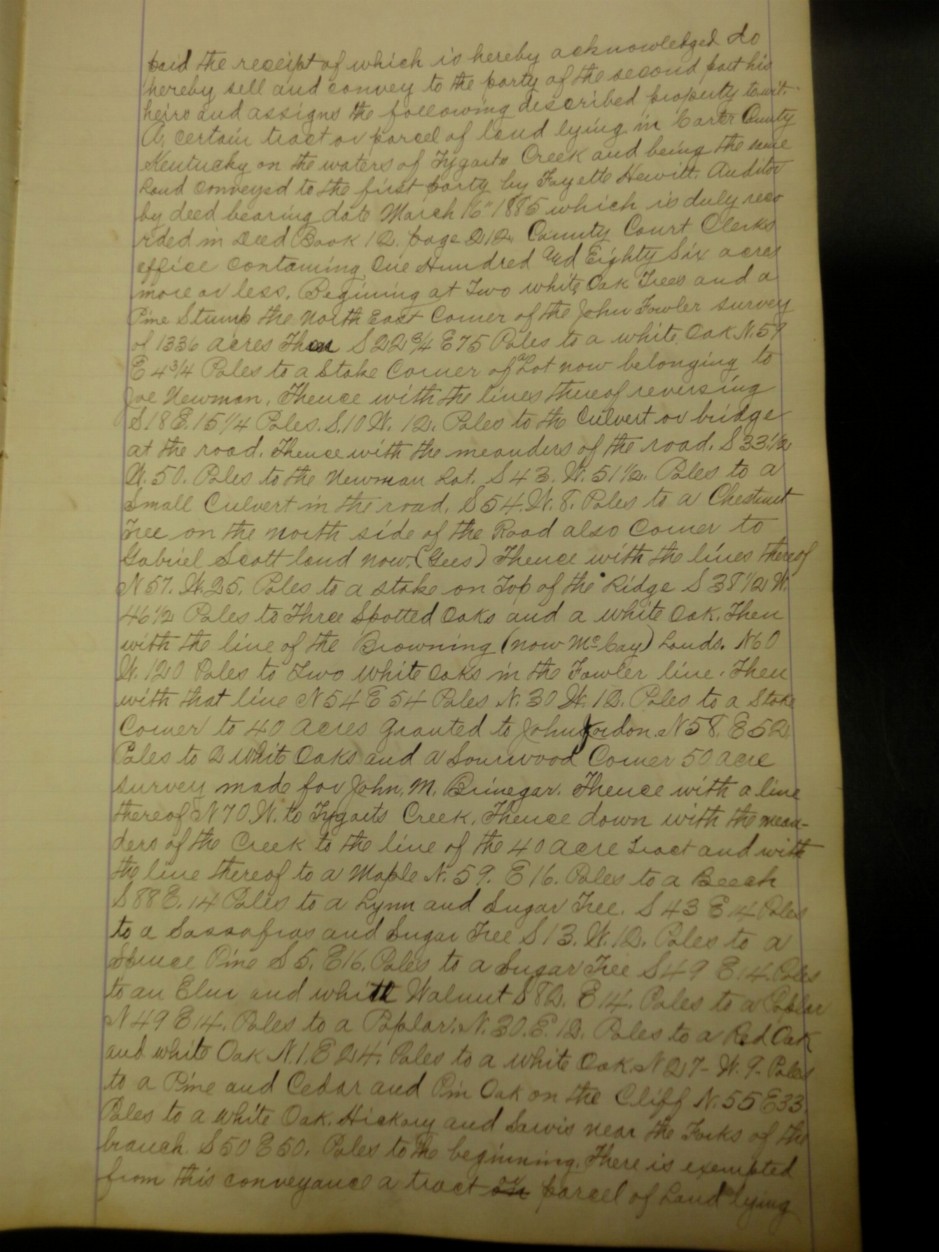 paid the receipt of which is hereby acknowledged do
hereby sell and convey to the party of the second part his
heirs and assigns the following described property towit.
A, certain tract or parcel of land lying in Carter County
Kentucky on the waters of Tygarts Creek and being the same
land conveyed to the first party by Fayette Hewitt. Auditor
by deed bearing date March 16" 1885 which is duly reco
rded in Deed Book 12. page 212. County Court Clerks
office containing One Hundred and Eighty Six acres
more or less. Begining at Two white Oak Trees and a
Pine Stump the North East Corner of the John Fowler survey
of 1336 acres Then S 22 3/4 E 75 Poles to a white Oak N. 59
E 4 3/4 Poles to a Stake Corner of a Lot now belonging to
Joe Newman. Thence with the lines thereof reversing
S 18 E. 15 1/4 Poles. S. 10 W. 12. Poles to the Culvert or bridge
at the road. Thence with the meanders of the road. S 33 1/2
W. 50. Poles to the Newman Lot. S 43. W. 51 1/2. Poles to a
Small Culvert in the road. S 54. W. 8. Poles to a Chestnut
Tree on the north side of the Road also Corner to
Gabriel Scott land now. (Gees) Thence with the lines thereof
N 57. W. 25. Poles to a stake on Top of the Ridge S 38 1/2 W.
46 1/2 Poles to Three Spotted Oaks and a white Oak. Then
with the line of the Browning (now McCay) Lands. N 60
W. 120 Poles to Two white Oaks in the Fowler line. Then
with that line N 54 E 54 Poles N. 30 W. 12. Poles to a Stake
Corner to 40 acres granted to John Jordon N 58. E 52
Poles to 2 whit Oaks and a Sourwood Corner 50 acre
survey made for John. M. Brinegar. Thence with a line
thereof N 70. W. to Tygarts Creek. Thence down with the mean-
ders of the Creek to the line of the 40 acre tract and with
the line thereof to a Maple N. 59. E 16. Poles to a Beech
S 88 E. 14 Poles to a Lynn and Sugar Tree. S 43 E 14 Poles
to a Sassafras and Sugar Tree S 13. W. 12. Poles to a
Spruce Pine S 5. E 16. Poles to a Sugar Tree S 49 E. 14. Poles
to an Elm and white Walnut S 82. E 14. Poles to a Poplar
N 49 E 14. Poles to a Poplar. N. 30. E 12. Poles to a Red Oak
and white Oak N 1. E 24. Poles to a white Oak. N 27- W. 9. Poles
to a Pine and Cedar and Pin Oak on the Cliff N. 55 E 33
Poles to a white Oak. Hickory and near the Forks of the
branch. S 50 E 50. Poles to the beginning. There is exempted
from this conveyance a tract or parcel of Land lying